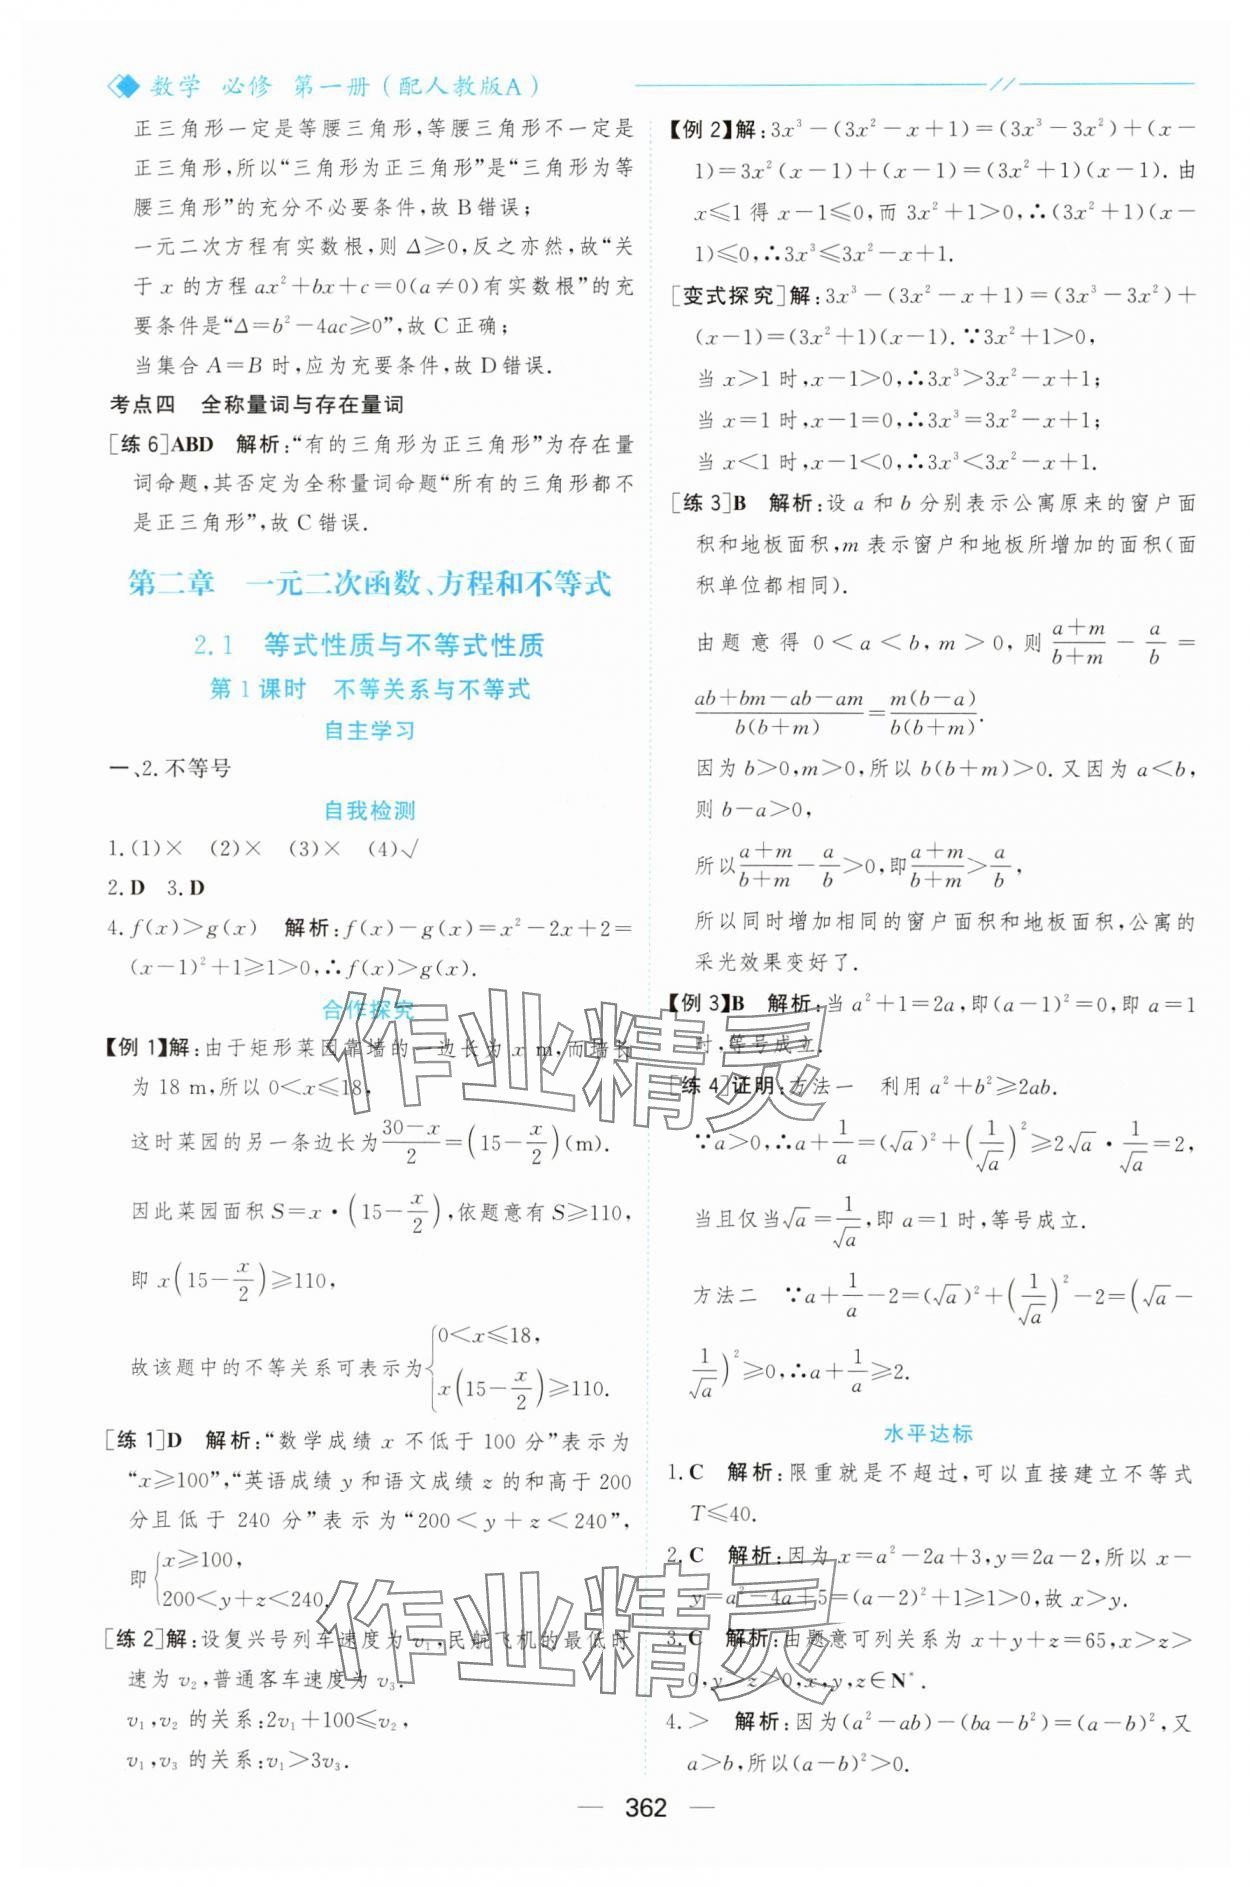 数学 必修 第一册(配人教版A)
正三角形一定是等腰三角形,等腰三角形不一定是
正三角形,所以“三角形为正三角形”是“三角形为等
腰三角形”的充分不必要条件,故 B 错误;
一元二次方程有实数根,则 Δ≥0,反之亦然,故“关
于 x 的方程 ax²+bx+c=0(a≠0)有实数根”的充
要条件是“Δ=b²-4ac≥0”,故 C 正确;
当集合 A=B 时,应为充要条件,故 D 错误.
考点四 全称量词与存在量词
[练 6]ABD 解析:“有的三角形为正三角形”为存在量
词命题,其否定为全称量词命题“所有的三角形都不
是正三角形”,故 C 错误.
第二章 一元二次函数、方程和不等式
2.1 等式性质与不等式性质
第 1 课时 不等关系与不等式
自主学习
一、2. 不等号
自我检测
1. (1)× (2)× (3)× (4)√
2. D 3. D
4. f(x)>g(x) 解析:f(x)-g(x)=x²-2x+2=
(x-1)²+1≥1>0,∴f(x)>g(x).
合作探究
【例 1】解:由于矩形菜园靠墙的一边长为 x m,而墙长
为 18 m,所以 0<x≤18,
这时菜园的另一条边长为(30-x)/2=(15-x/2)(m).
因此菜园面积 S=x·(15-x/2),依题意有 S≥110,
即 x(15-x/2)≥110,
故该题中的不等关系可表示为{0<x≤18,
x(15-x/2)≥110.
[练 1]D 解析:“数学成绩 x 不低于 100 分”表示为
“x≥100”,“英语成绩 y 和语文成绩 z 的和高于 200
分且低于 240 分”表示为“200<y+z<240”,
即{x≥100,
200<y+z<240.
[练 2]解:设复兴号列车速度为 v₁,民航飞机的最低时
速为 v₂,普通客车速度为 v₃.
v₁,v₂ 的关系:2v₁+100≤v₂,
v₁,v₃ 的关系:v₁>3v₃.
【例 2】解:3x³-(3x²-x+1)=(3x³-3x²)+(x-
1)=3x²(x-1)+(x-1)=(3x²+1)(x-1). 由
x≤1 得 x-1≤0,而 3x²+1>0,∴(3x²+1)(x-
1)≤0,∴3x³≤3x²-x+1.
[变式探究]解:3x³-(3x²-x+1)=(3x³-3x²)+
(x-1)=(3x²+1)(x-1). ∵3x²+1>0,
当 x>1 时,x-1>0,∴3x³>3x²-x+1;
当 x=1 时,x-1=0,∴3x³=3x²-x+1;
当 x<1 时,x-1<0,∴3x³<3x²-x+1.
[练 3]B 解析:设 a 和 b 分别表示公寓原来的窗户面
积和地板面积,m 表示窗户和地板所增加的面积(面
积单位都相同).
由题意得 0<a<b,m>0,则 (a+m)/(b+m)-a/b=
(ab+bm-ab-am)/(b(b+m))=m(b-a)/(b(b+m)).
因为 b>0,m>0,所以 b(b+m)>0. 又因为 a<b,
则 b-a>0,
所以(a+m)/(b+m)-a/b>0,即(a+m)/(b+m)>a/b,
所以同时增加相同的窗户面积和地板面积,公寓的
采光效果变好了.
【例 3】B 解析:当 a²+1=2a,即(a-1)²=0,即 a=1
时,等号成立.
[练 4]证明:方法一 利用 a²+b²≥2ab.
∵a>0,∴a+1/a=(√a)²+(1/√a)²≥2√a·1/√a=2,
当且仅当√a=1/√a,即 a=1 时,等号成立.
方法二 ∵a+1/a-2=(√a)²+(1/√a)²-2=(√a-
1/√a)²≥0,∴a+1/a≥2.
水平达标
1. C 解析:限重就是不超过,可以直接建立不等式
T≤40.
2. C 解析:因为 x=a²-2a+3,y=2a-2,所以 x-
y=a²-4a+5=(a-2)²+1≥1>0,故 x>y.
3. C 解析:由题意可列关系为 x+y+z=65,x>z>
0,y>z>0,x,y,z∈N*.
4. > 解析:因为(a²-ab)-(ba-b²)=(a-b)²,又
a>b,所以(a-b)²>0.
362
作业精灵
作业精灵